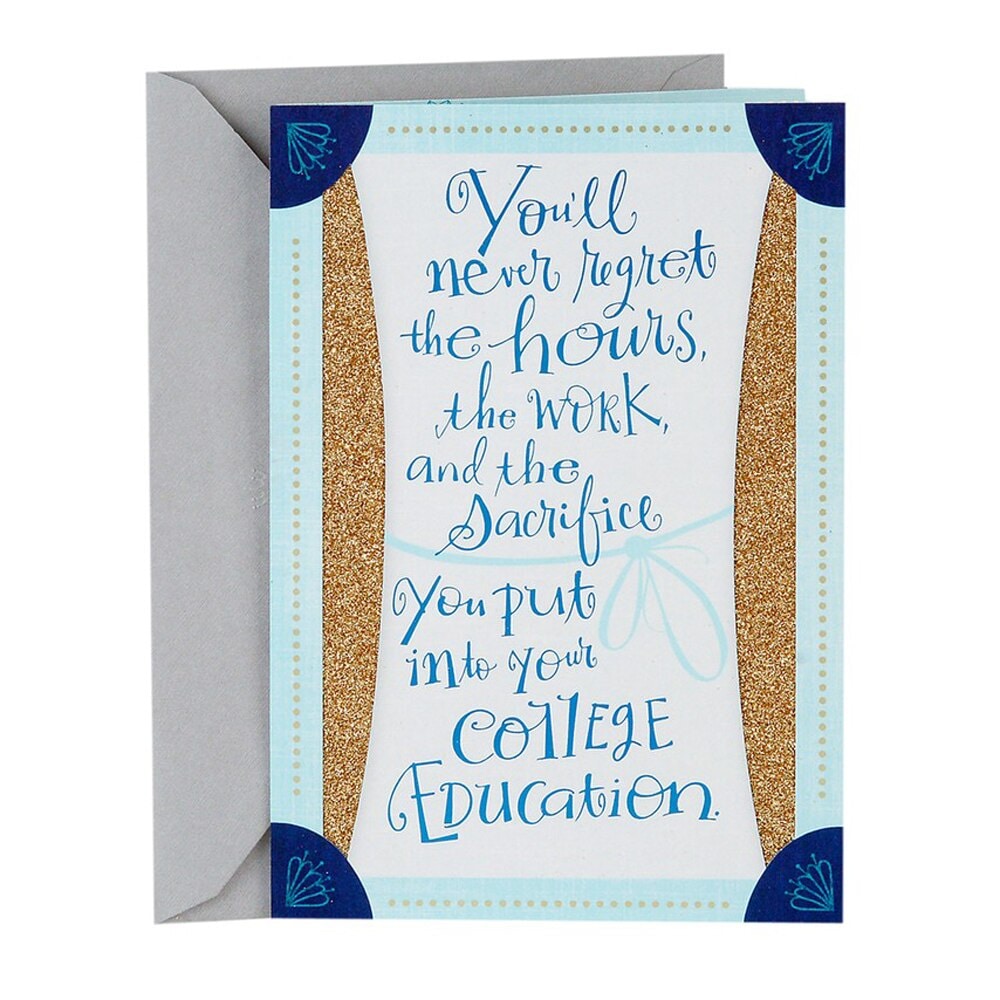 You'll
never regret
the hours,
the WORK,
and the
sacrifice
you put
into your
COllEgE
EDUCation.